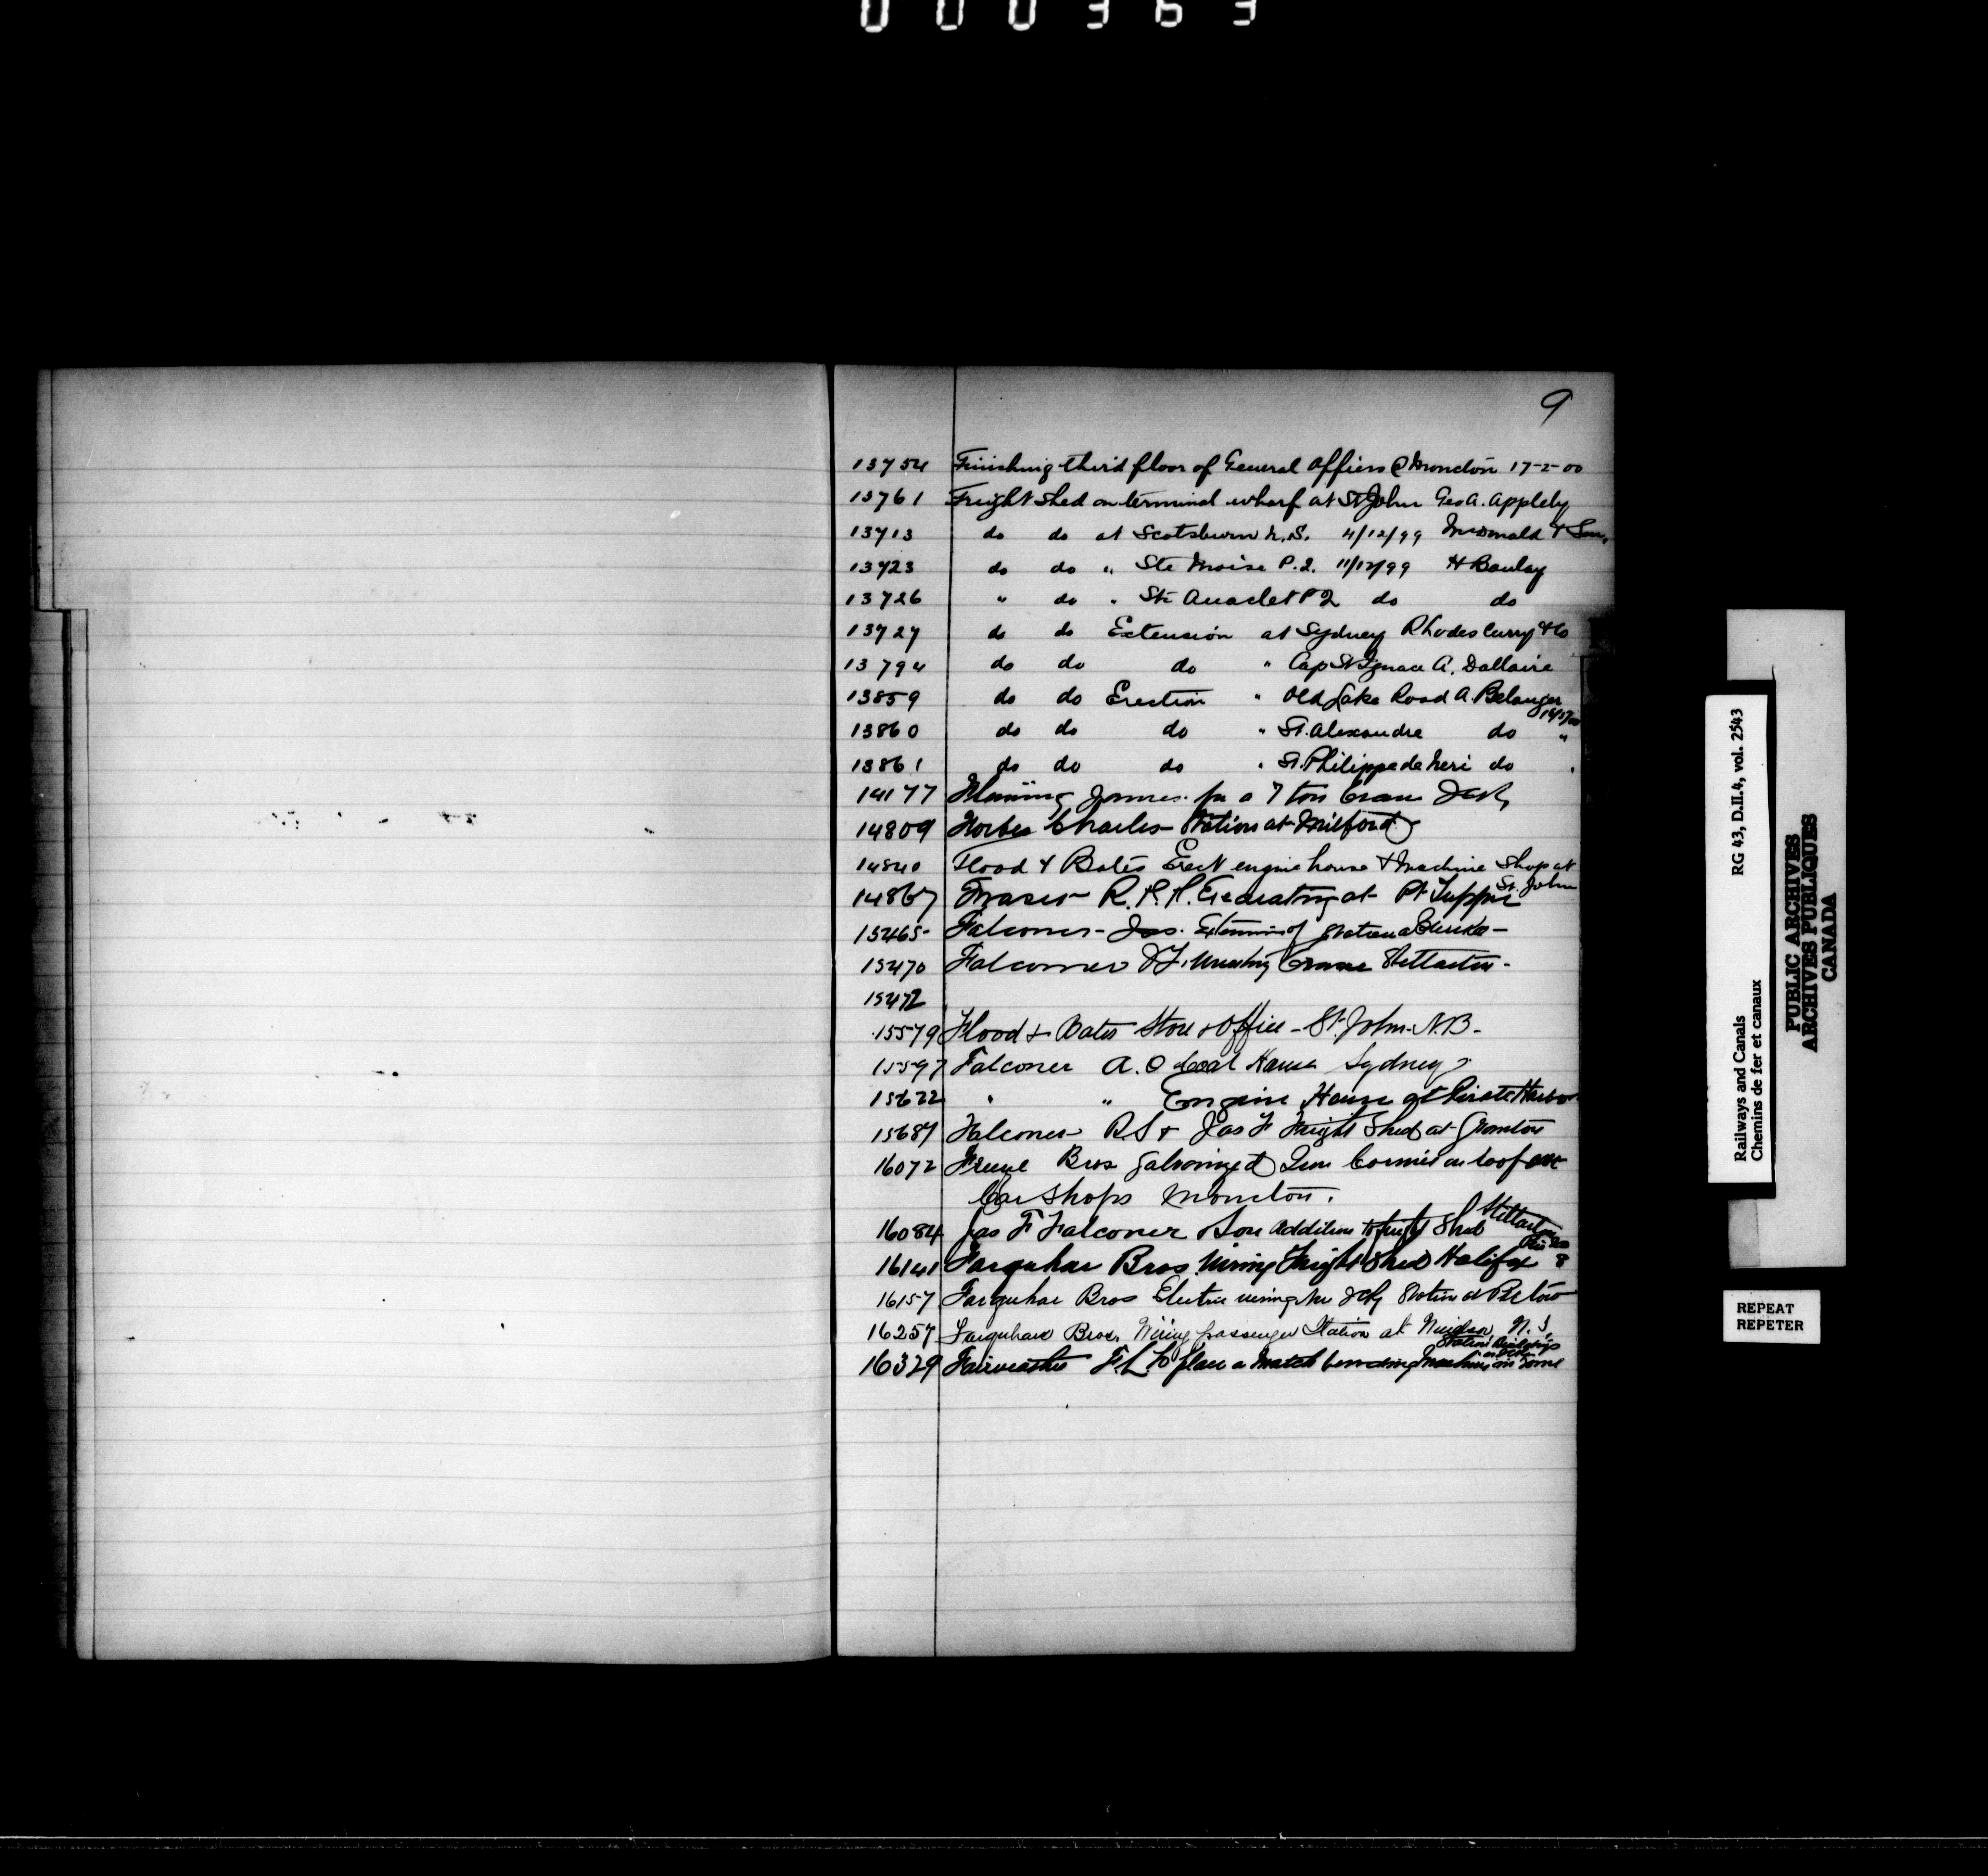 000363
9
13754 Finishing third floor of General Offices @ Moncton 17-2-00
13761 Freight Shed on terminal wharf at St John Geo A. Appleby
13713 do do at Scotsburn N.S. 4/12/99 McDonald & Son.
13723 do do " Ste Moise P.Q. 11/12/99 H Boulay
13726 " do " St Anaclet P Q do do
13727 do do Extension at Sydney Rhodes Curry & Co
13794 do do do " Cap St Ignace A. Dallaire
13859 do do Erection " Old Lake Road A. Belanger
13860 do do do " St. Alexandre do "
13861 do do do " St. Philippe de Neri do "
14177 Fleming James for a 7 ton Crane
14809 Forbes Charles Station at Milford
14840 Flood & Bates Erect engine house & Machine Shop at
St. John
14867 Fraser R. P. Excavating at Pt Tupper
15465 Falconer Jas. Extension of Station
15470 Falconer Crane Stellarton
15472
15579 Flood & Bates Store & Office - St. John. N.B.
15597 Falconer A. O Coal House Sydney
15622 " " Engine House at Pirate Harbor
15687 Falconer R S & Jas F Freight Shed at
16072 Bros Galvanized Iron Cornice on roof
Car Shops Moncton.
16084 Jas F Falconer Son Addition to freight Shed Stellarton
16141 Farquhar Bros Wiring Freight Shed Halifax
16157 Farquhar Bros Electric wiring Station at Pictou
16257 Farquhar Bros. Wiring passenger Station at Windsor N.S.
16329 Fairweather F. L. to place a Match vending Machine in some
Station Buildings
RG 43, D.II.4, vol. 2543
Railways and Canals
Chemins de fer et canaux
PUBLIC ARCHIVES
ARCHIVES PUBLIQUES
CANADA
REPEAT
REPETER